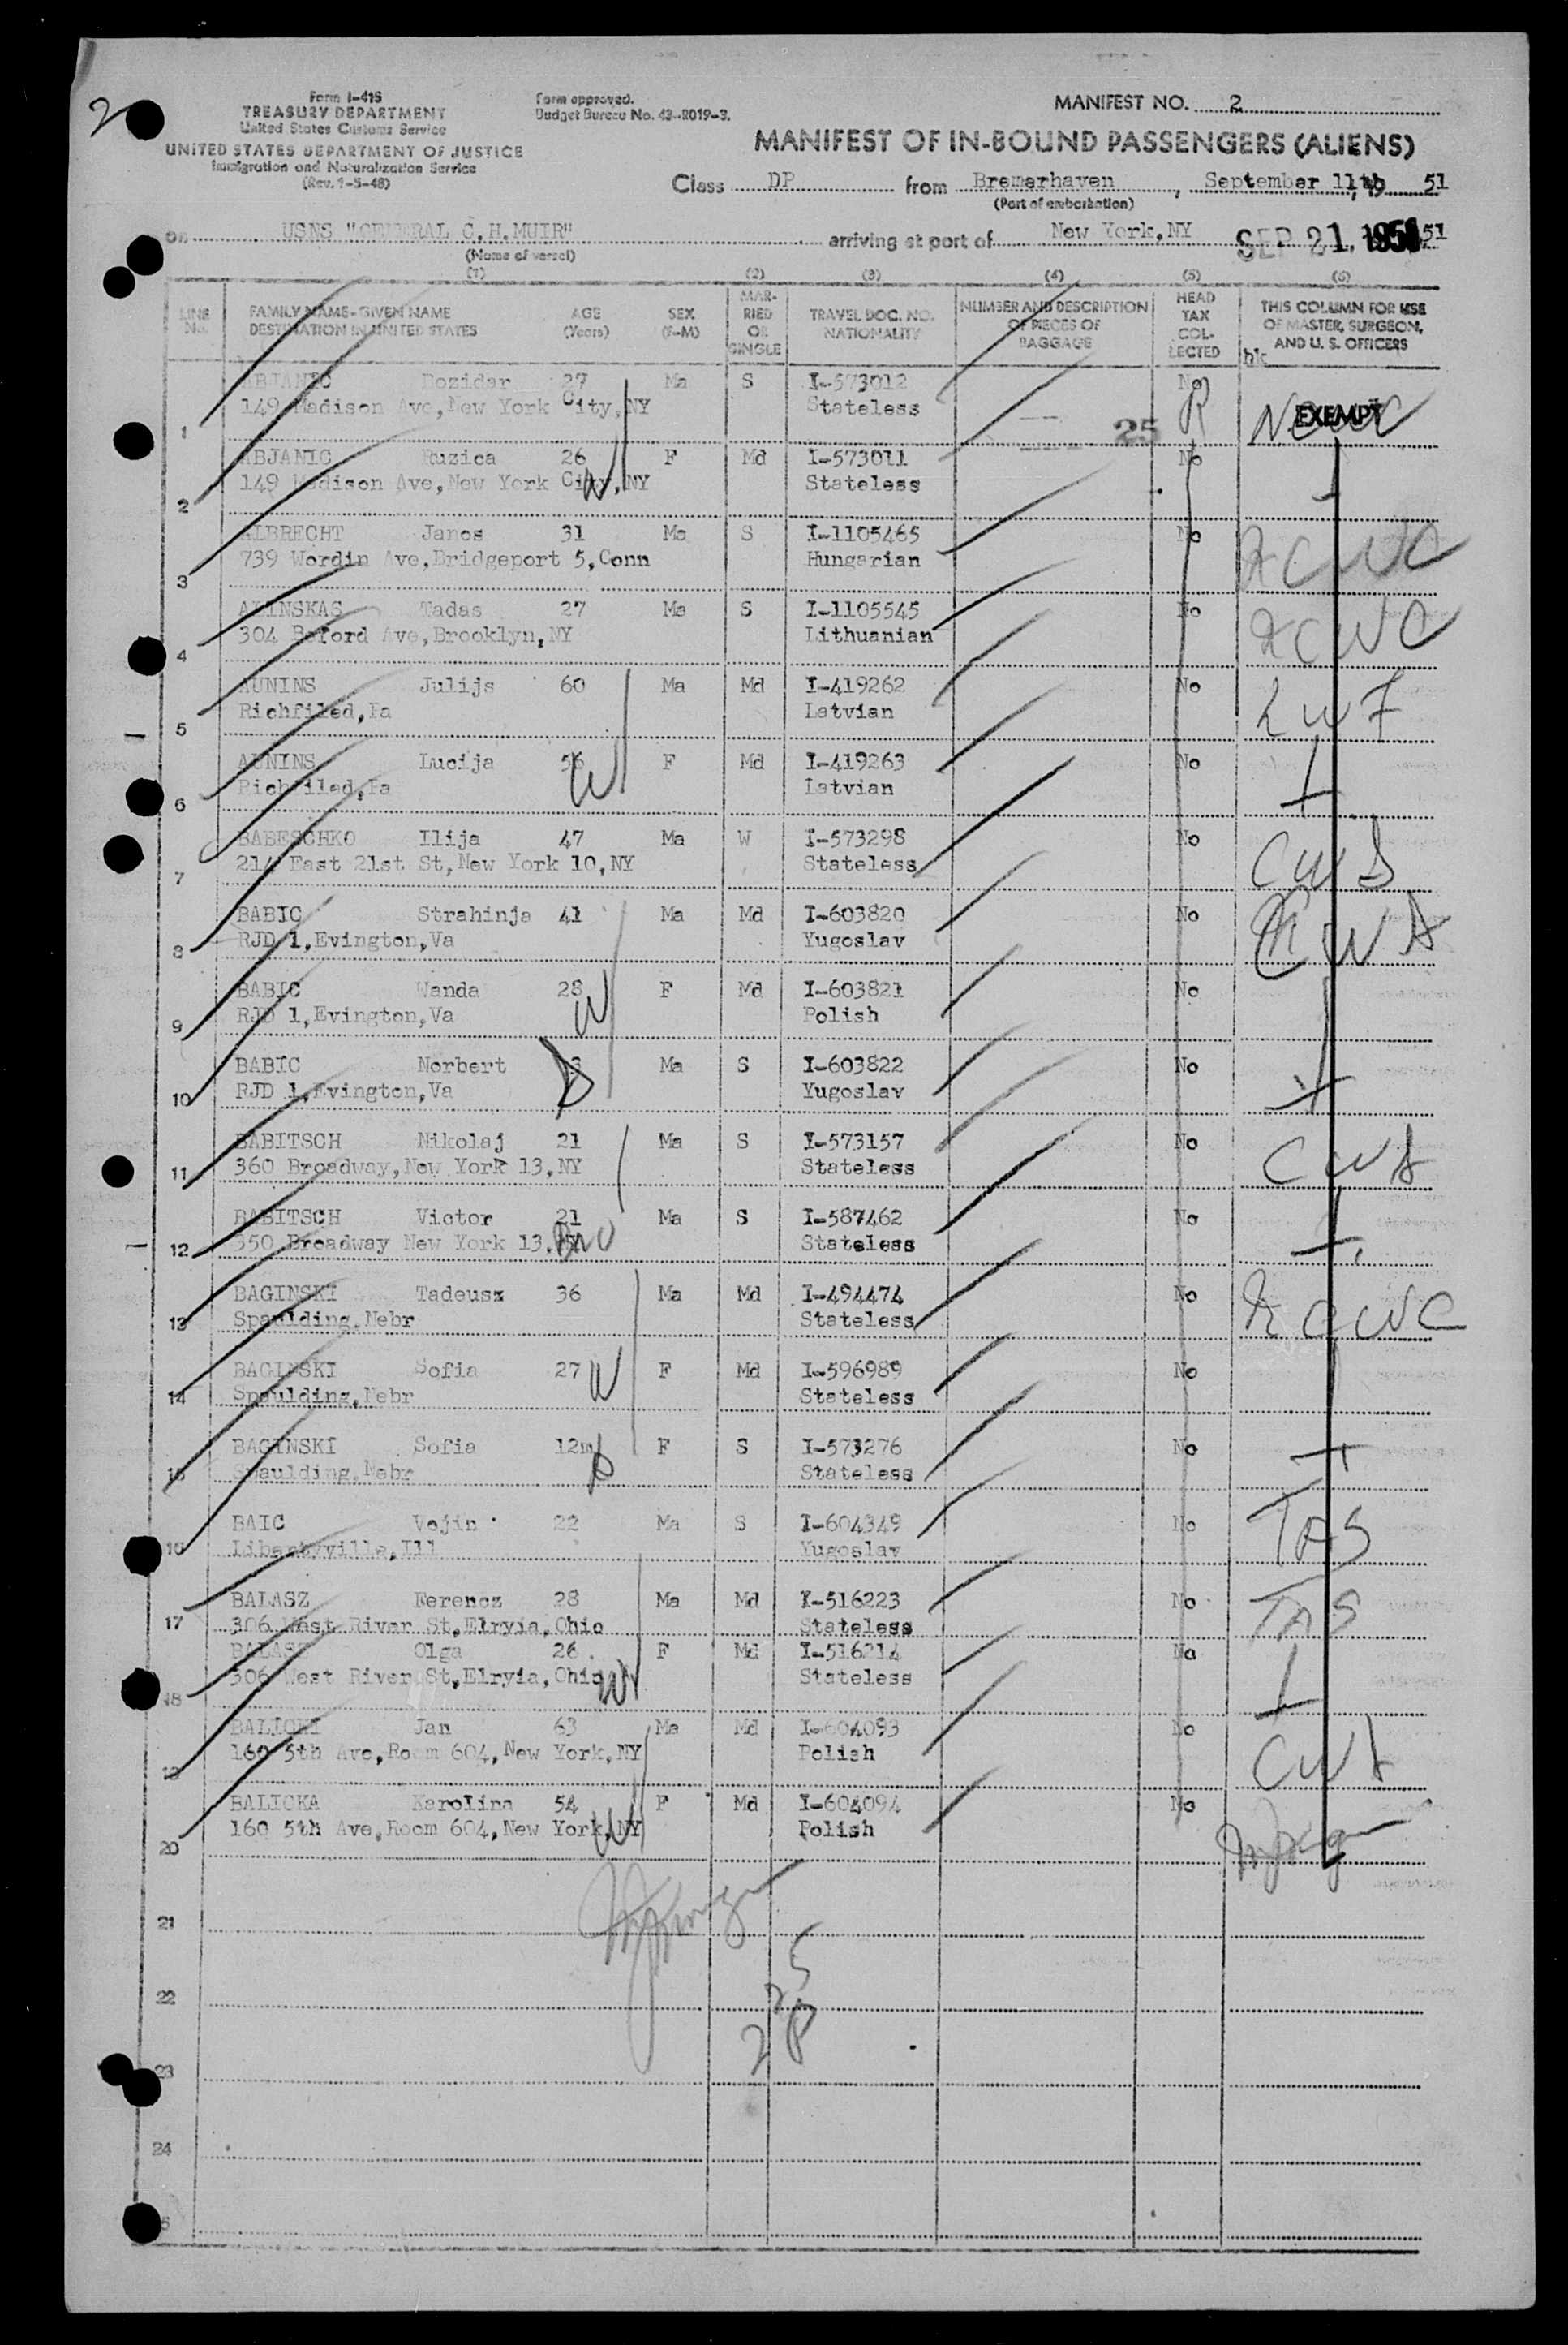 2
Form I-415
TREASURY DEPARTMENT
United States Customs Service
UNITED STATES DEPARTMENT OF JUSTICE
Immigration and Naturalization Service
(Rev. 1-5-48)
Form approved.
Budget Bureau No. 43-R019-3.
MANIFEST NO. 2
MANIFEST OF IN-BOUND PASSENGERS (ALIENS)
Class DP from Bremerhaven, September 11th, 51
(Port of embarkation)
on USNS "GENERAL C.H.MUIR" arriving at port of New York,NY SEP 21 1951 51
(Name of vessel)
(1) (2) (3) (4) (5) (6)
LINE No. FAMILY NAME-GIVEN NAME DESTINATION IN UNITED STATES AGE (Years) SEX (F-M) MARRIED OR SINGLE TRAVEL DOC. NO. NATIONALITY NUMBER AND DESCRIPTION OF PIECES OF BAGGAGE HEAD TAX COLLECTED THIS COLUMN FOR USE OF MASTER, SURGEON, AND U. S. OFFICERS
1 ABJANIC Bozidar 27 Ma S I-573012 No
149 Madison Ave,New York City,NY Stateless 25 R NCWC EXEMPT
2 ABJANIC Ruzica 26 F Md I-573011 No
149 Madison Ave,New York City,NY Stateless
3 ALBRECHT Janos 31 Ma S I-1105465 No NCWC
739 Wordin Ave,Bridgeport 5,Conn Hungarian
4 ALINSKAS Tadas 27 Ma S I-1105545 No NCWC
304 Beford Ave,Brooklyn,NY Lithuanian
5 AUNINS Julijs 60 Ma Md I-419262 No LWF
Richfiled,Pa Latvian
6 AUNINS Lucija 56 F Md I-419263 No
Richfiled,Pa W Latvian
7 BABESCHKO Ilija 47 Ma W I-573298 No CWS
214 East 21st St,New York 10,NY Stateless
8 BABIC Strahinja 41 Ma Md I-603820 No CWS
RJD 1,Evington,Va Yugoslav
9 BABIC Wanda 28 F Md I-603821 No
RJD 1,Evington,Va W Polish
10 BABIC Norbert 3 Ma S I-603822 No
RJD 1,Evington,Va Yugoslav
11 BABITSCH Nikolaj 21 Ma S I-573157 No CWS
360 Broadway,New York 13,NY Stateless
12 BABITSCH Victor 21 Ma S I-587462 No
350 Broadway New York 13,NY Bro Stateless
13 BAGINSKI Tadeusz 36 Ma Md I-494474 No NCWC
Spaulding,Nebr Stateless
14 BAGINSKI Sofia 27 W F Md I-596989 No
Spaulding,Nebr Stateless
15 BAGINSKI Sofia 12m F S I-573276 No
Spaulding,Nebr Stateless
16 BAIC Vojin 22 Ma S I-604349 No TAS
Libertyville,Ill Yugoslav
17 BALASZ Ferencz 28 Ma Md I-516223 No TAS
306 West River St,Elryia,Ohio Stateless
18 BALASZ Olga 26 F Md I-516214 No
306 West River St,Elryia,Ohio W Stateless
19 BALICKI Jan 63 Ma Md I-604093 No CWS
160 5th Ave,Room 604,New York,NY Polish
20 BALICKA Karolina 54 F Md I-604094 No
160 5th Ave,Room 604,New York,NY W Polish
21
22
25
2 P
23
24